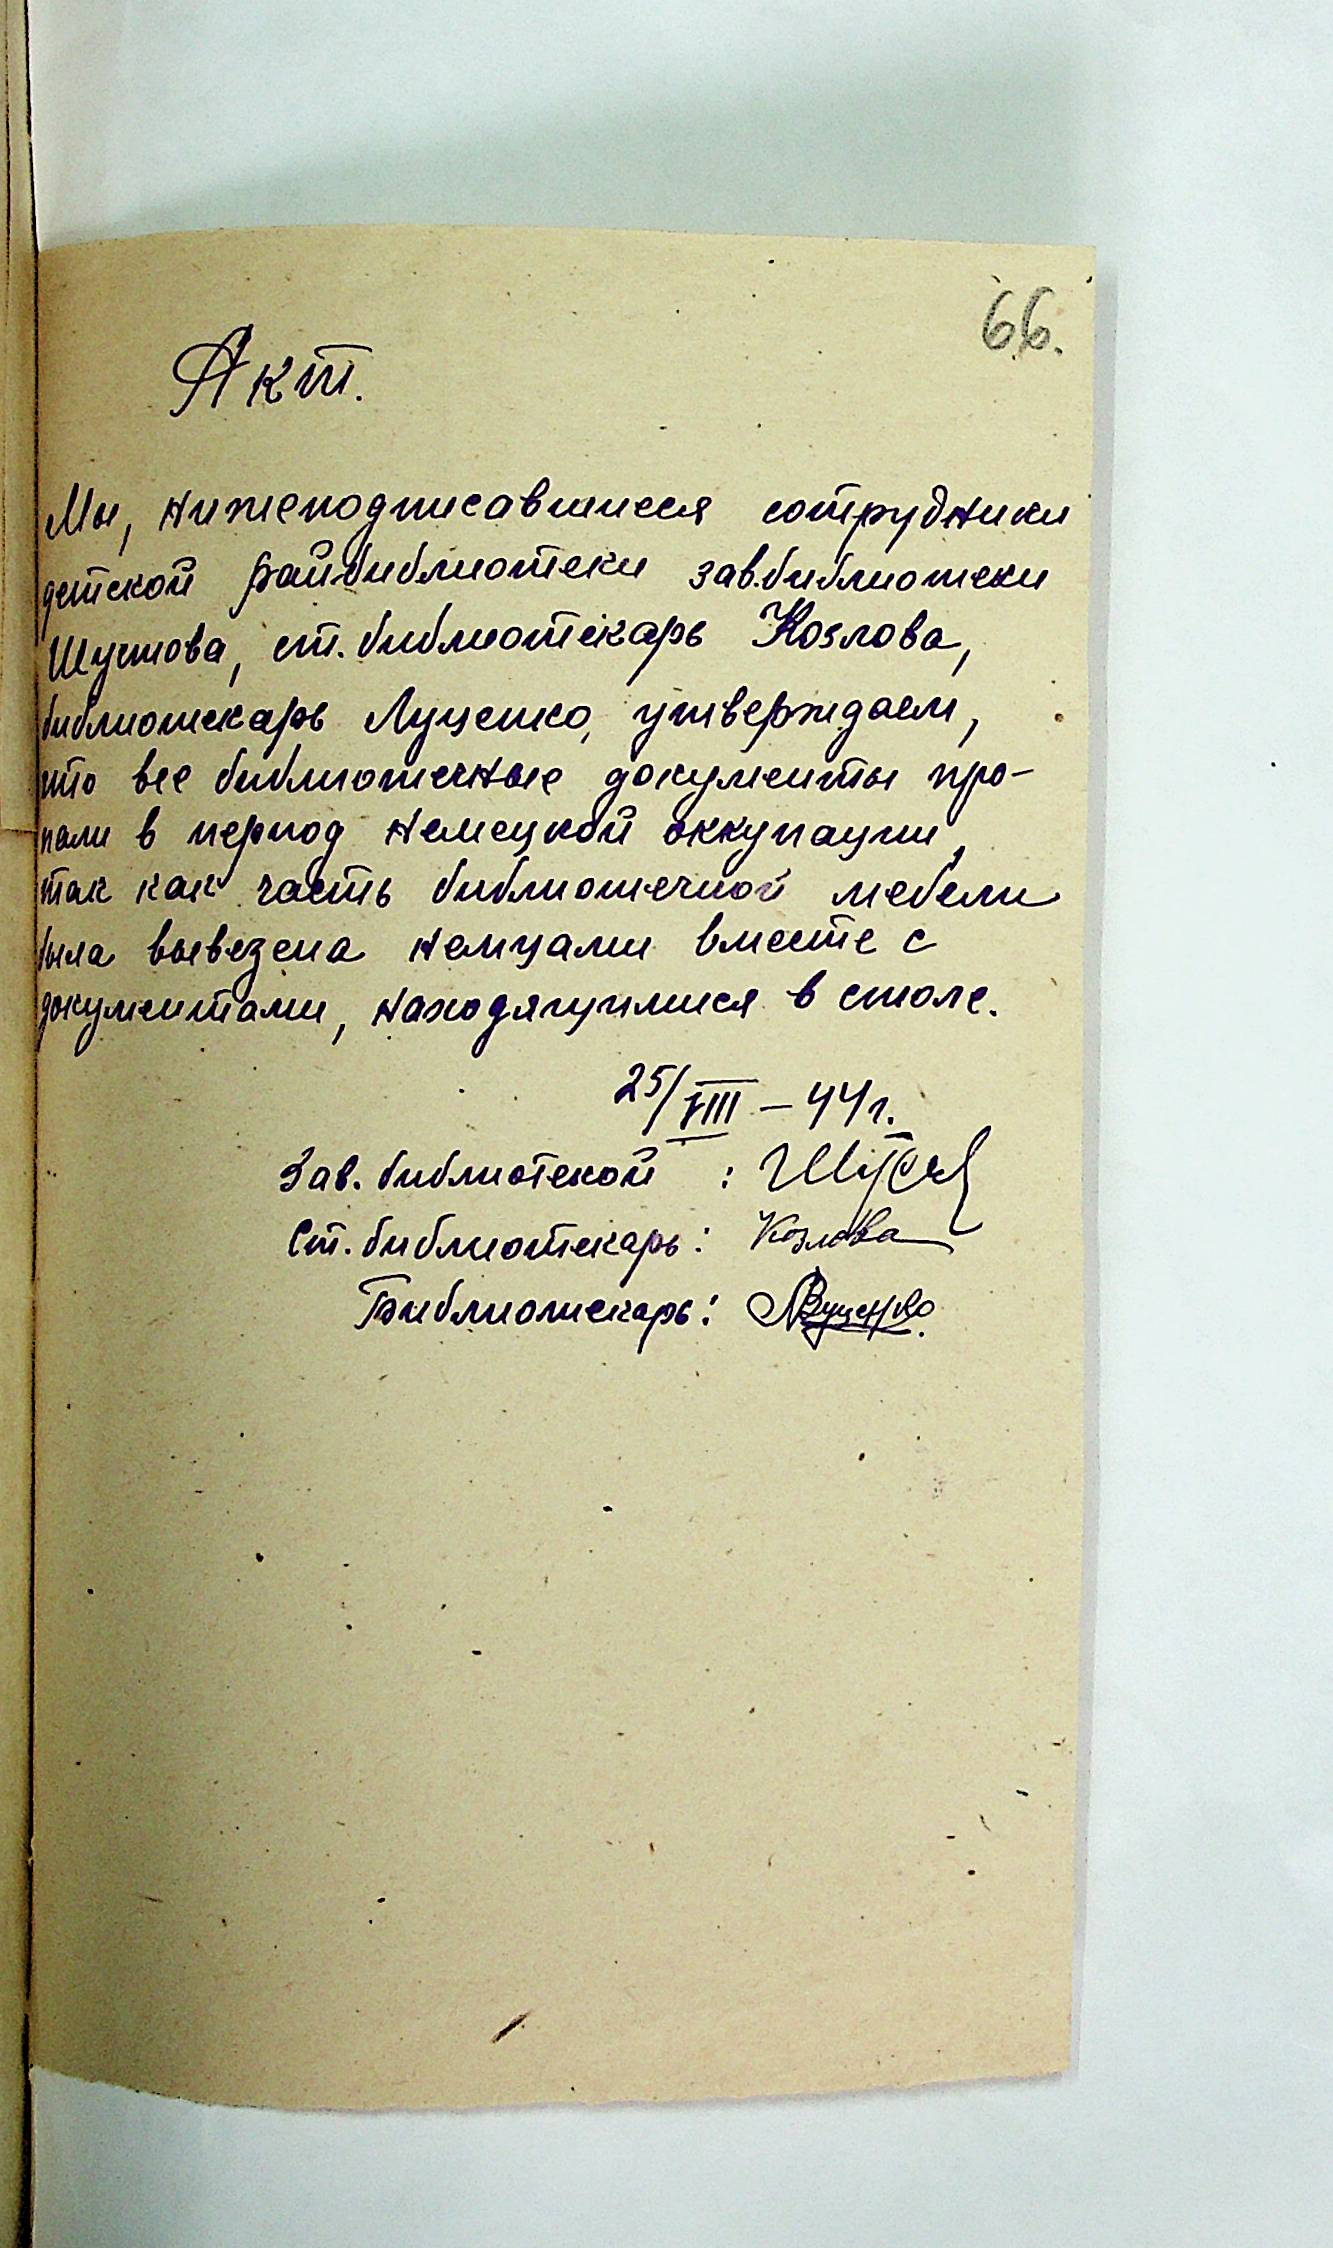 66.
Акт.
Мы, нижеподписавшиеся сотрудники
детской райбиблиотеки зав.библиотеки
Шустова, ст. библиотекарь Козлова,
библиотекарь Луценко, утверждаем,
что все библиотечные документы про-
пали в период немецкой оккупации,
так как часть библиотечной мебели
была вывезена немцами вместе с
документами, находящимися в столе.
25/VIII – 44г.
Зав. библиотекой :
Ст. библиотекарь: Козлова
Библиотекарь: Луценко